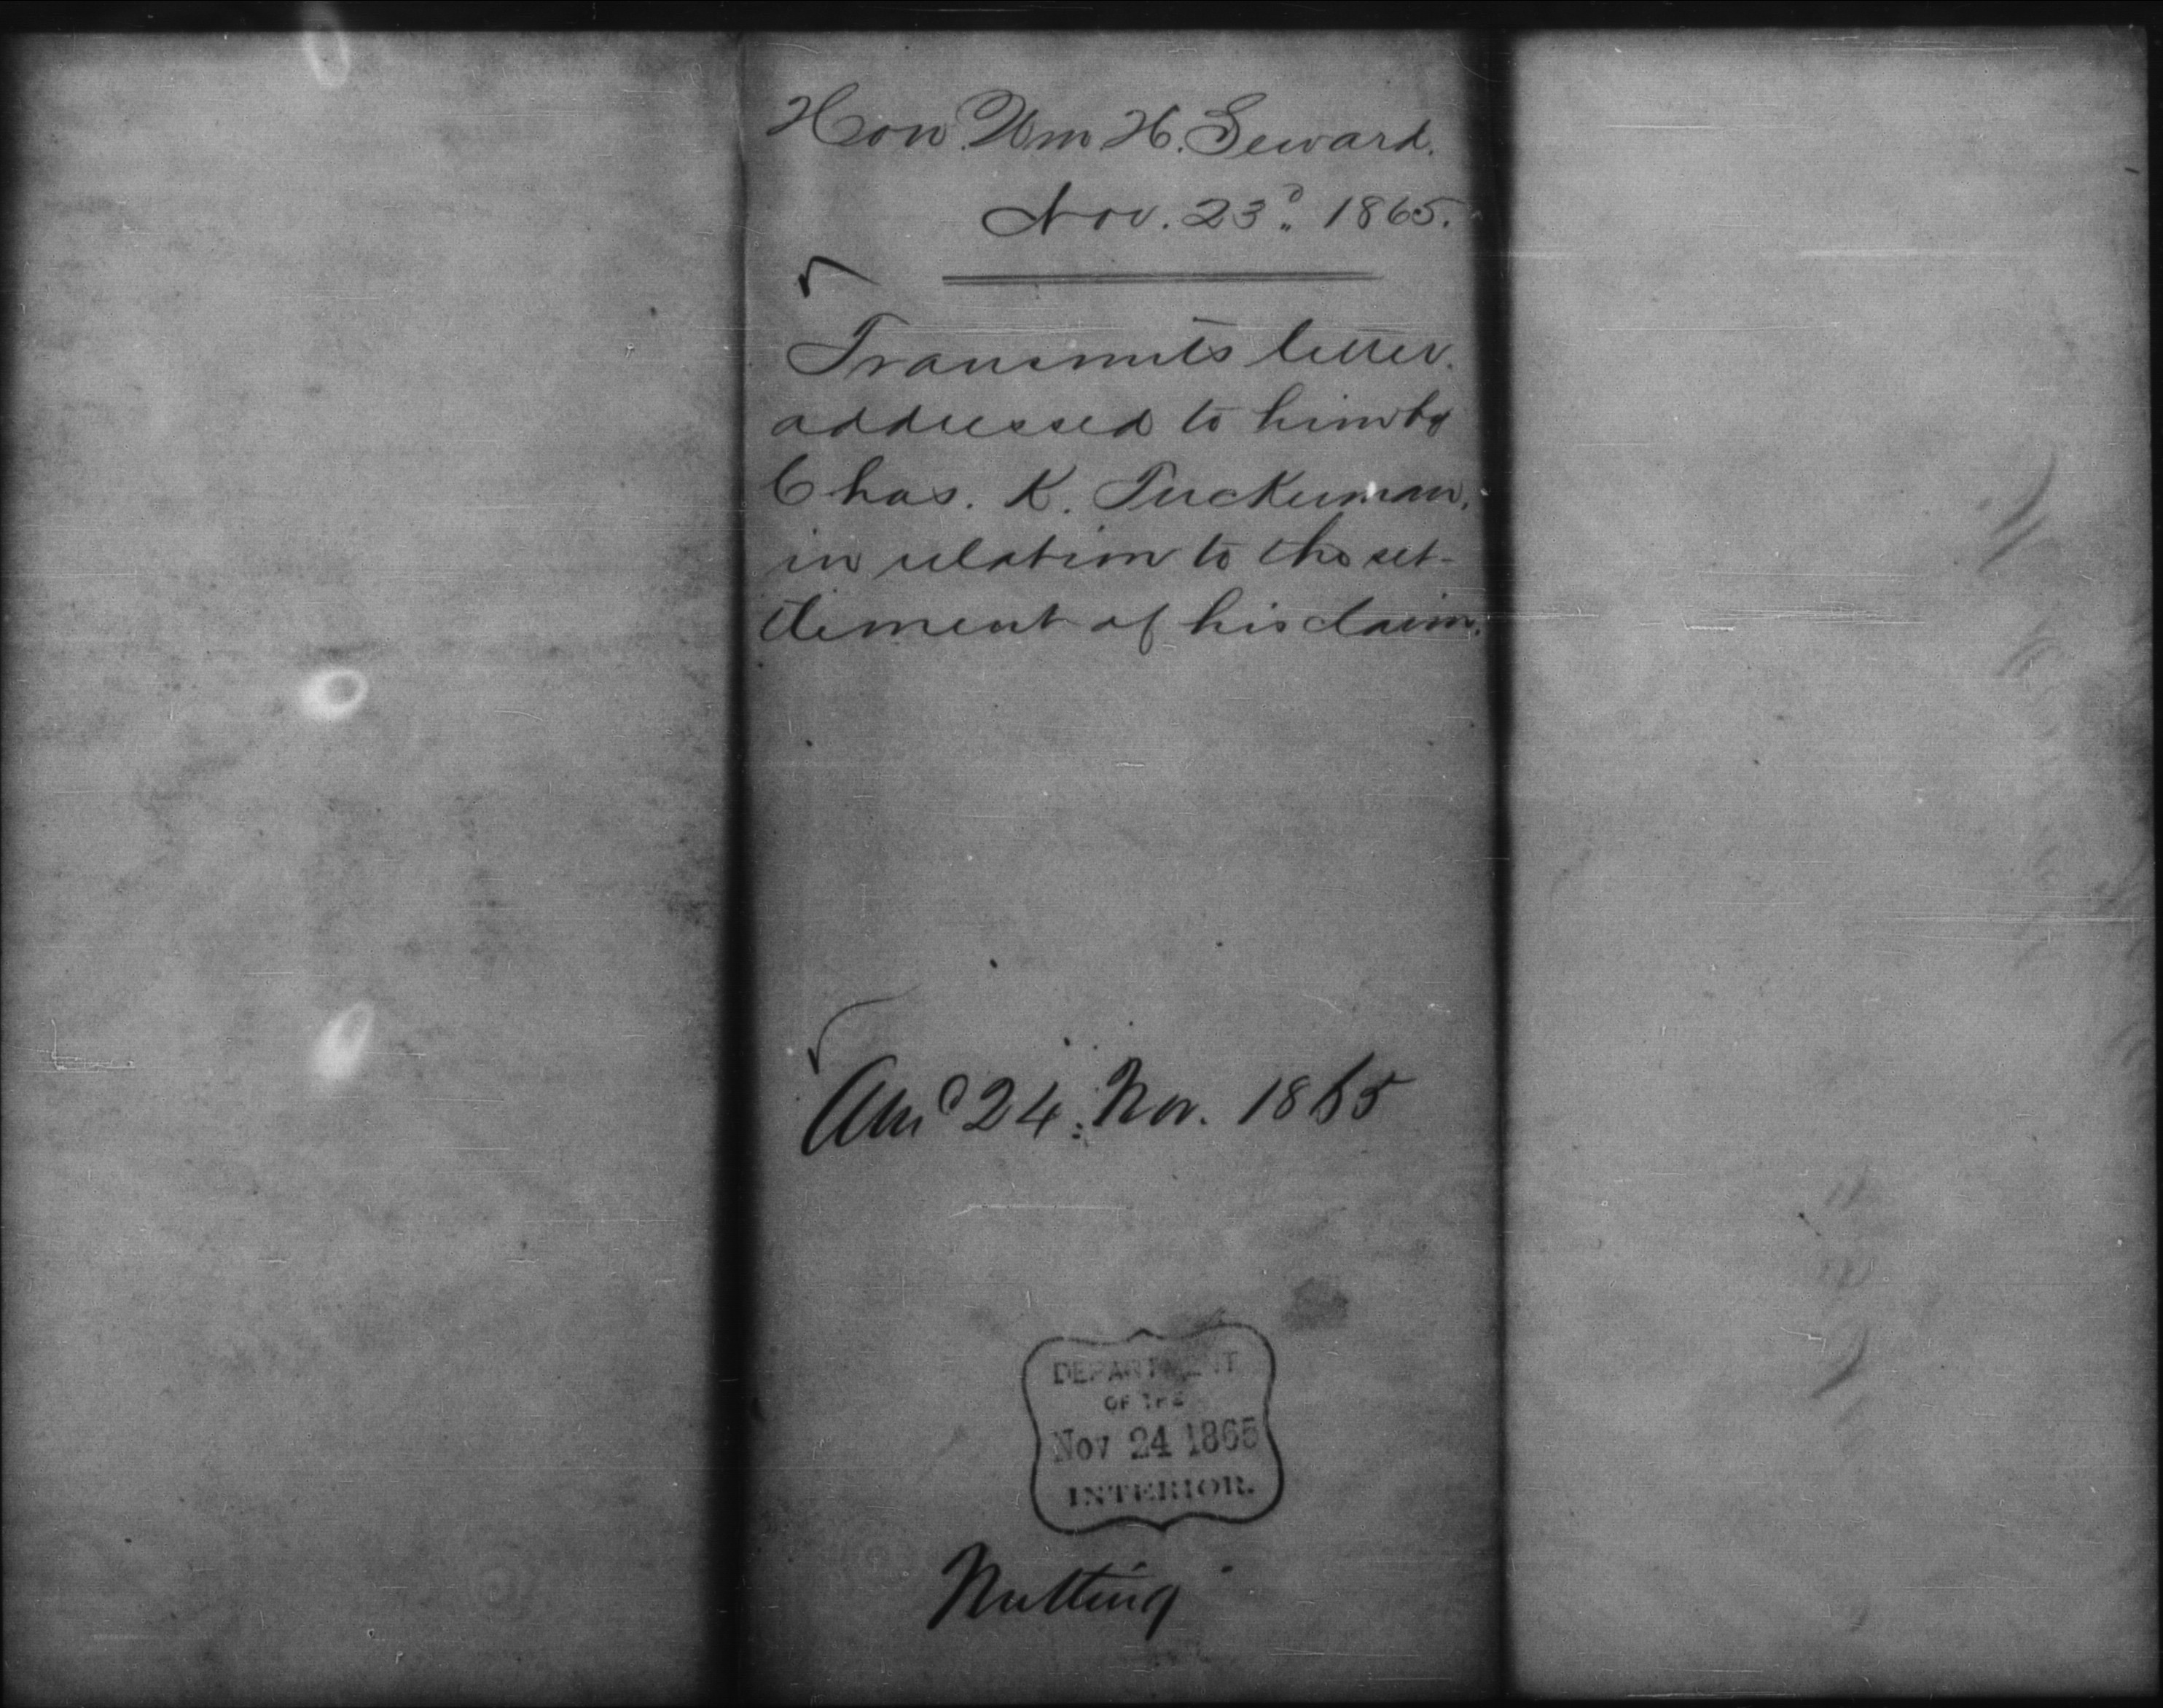 Hon. Wm H. Seward.
Nov. 23d. 1865.
Transmits letter.
addressed to him by
Chas. K. Tuckerman,
in relation to the set-
tlement of his claim.
Ansd 24. Nov. 1865
DEPARTMENT
OF THE
Nov 24 1865
INTERIOR.
Nutting